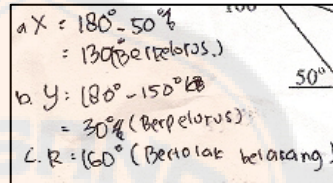 a X = 180° - 50°
= 130° (Berpelurus.)
b. y = 180° - 150°
= 30° (Berpelurus)
C. R = 160° (Bertolak belakang)
50°